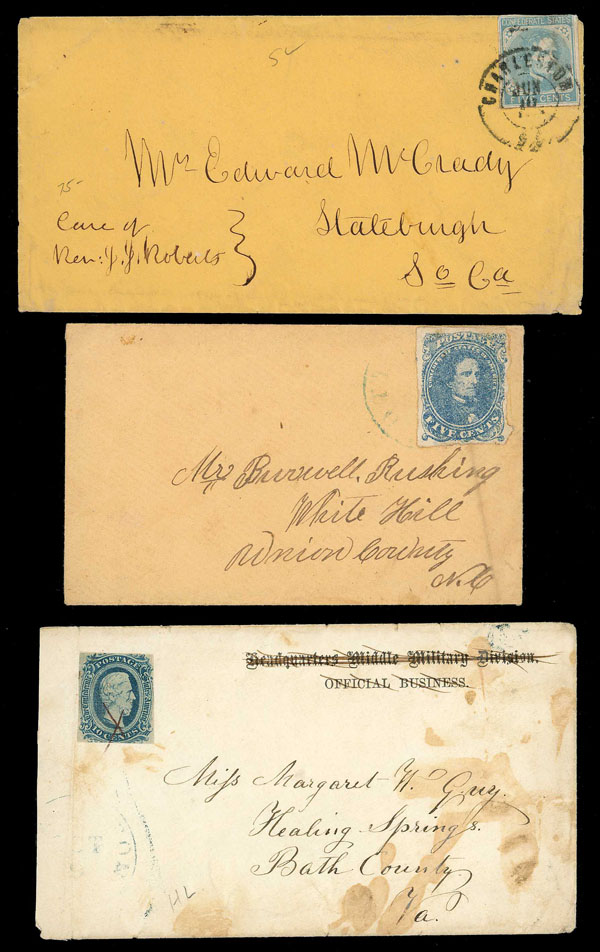 CONFEDERATE STATES
FIVE CENTS
CHARLESTON
JUN
10
5-
Mr Edward McCrady
75-
Care of
Rev: J. J. Roberts
Stateburgh
So Ca
POSTAGE
CONFEDERATE STATES OF AMERICA
FIVE CENTS
Mr Burwell Rushing
White Hill
Union County
N.C
Headquarters Middle Military Division.
OFFICIAL BUSINESS.
POSTAGE
10 CENTS
X
Miss Margaret W. Guy.
Healing Springs.
Bath County
Va.
HL